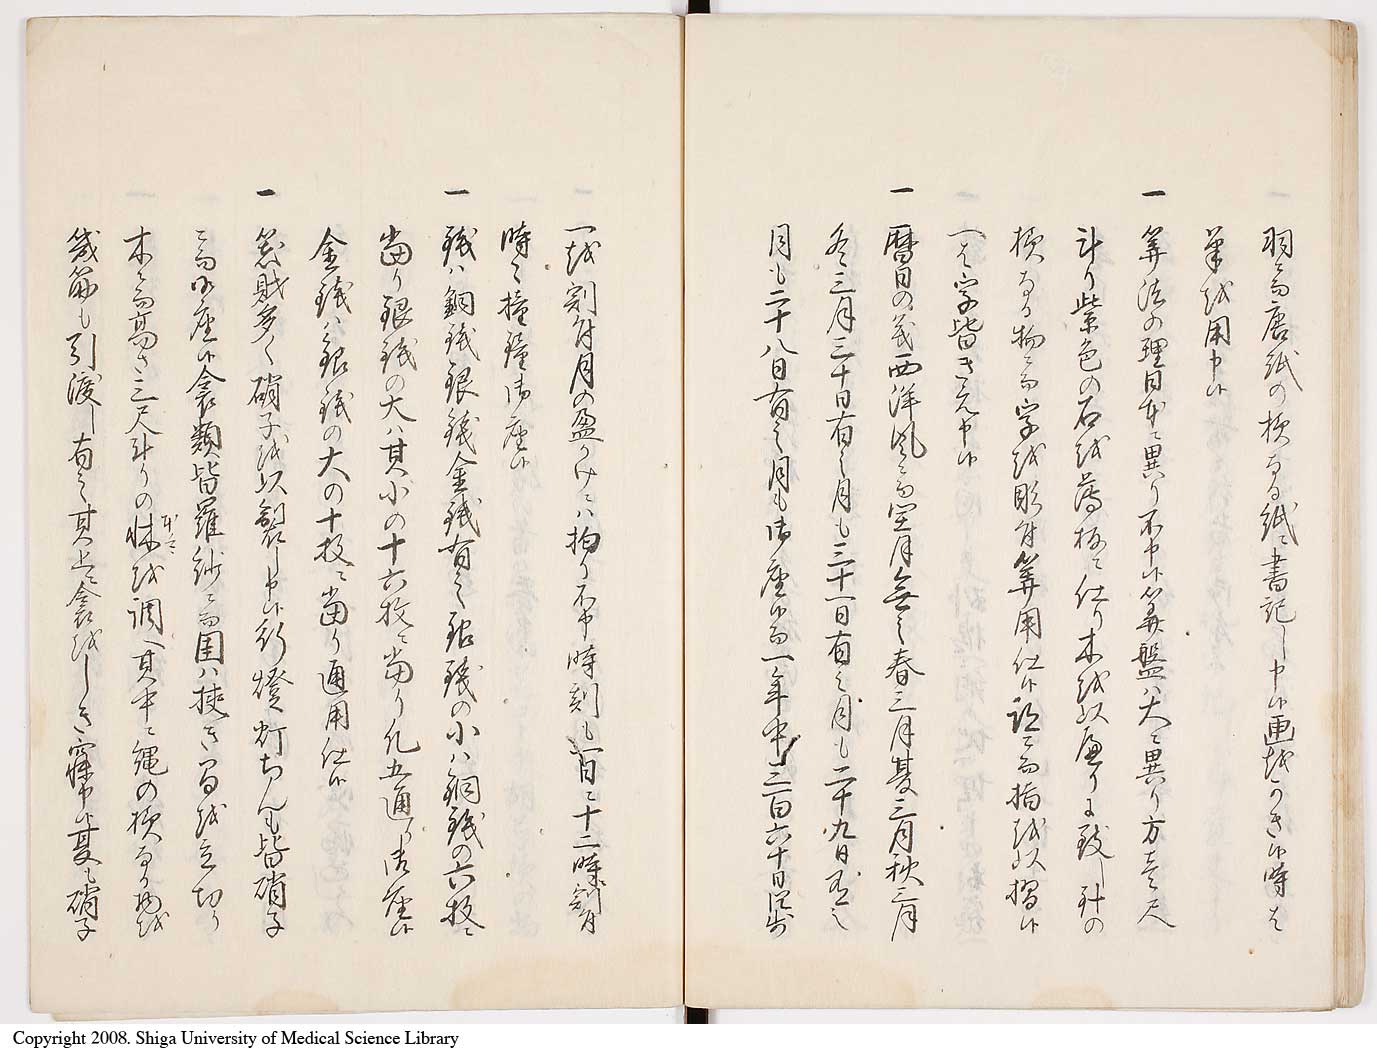 羽ニ而唐紙の様なる紙ニ書記し申候画越かき候時は
筆越用申候
一 算法の理日本ニ異り不申候算盤ハ大ニ異り方壱尺
斗り紫色の石越薄板ニ仕り木越以廉りよ致し針の
様なる物ニ而字越彫付算用仕候跡ニ而指越以摺候
へは字皆きえ申候
一 暦日の義西洋風ニ而閏月無之春三月夏三月秋三月
冬三月三十日有之月も三十一日有之月も二十九日有之
月も二十八日有之月も御座候而一年中三百六十日
一越割付月の盈かけニハ拘り不申時刻も一日ニ十二時割付
時々撞鐘御座候
一 銭ハ銅銭銀銭金銭有之銀銭の小ハ銅銭の六枚ニ
当り銀銭の大ハ其小の十六枚ニ当り凡五通り御座候
金銭ハ銀銭の大の十枚ニ当り通用仕候
一 器財多く硝子越以製し申候行燈灯ちんも皆硝子
ニ而御座候衾類皆羅紗ニ而団ハ挟き島越立切り
木ニ而高さ三尺斗りの牀越調へ其中ニ縄の様なる物越
幾筋も引渡し有之其上ニ衾越しき寐申候夏も硝子
Copyright 2008. Shiga University of Medical Science Library